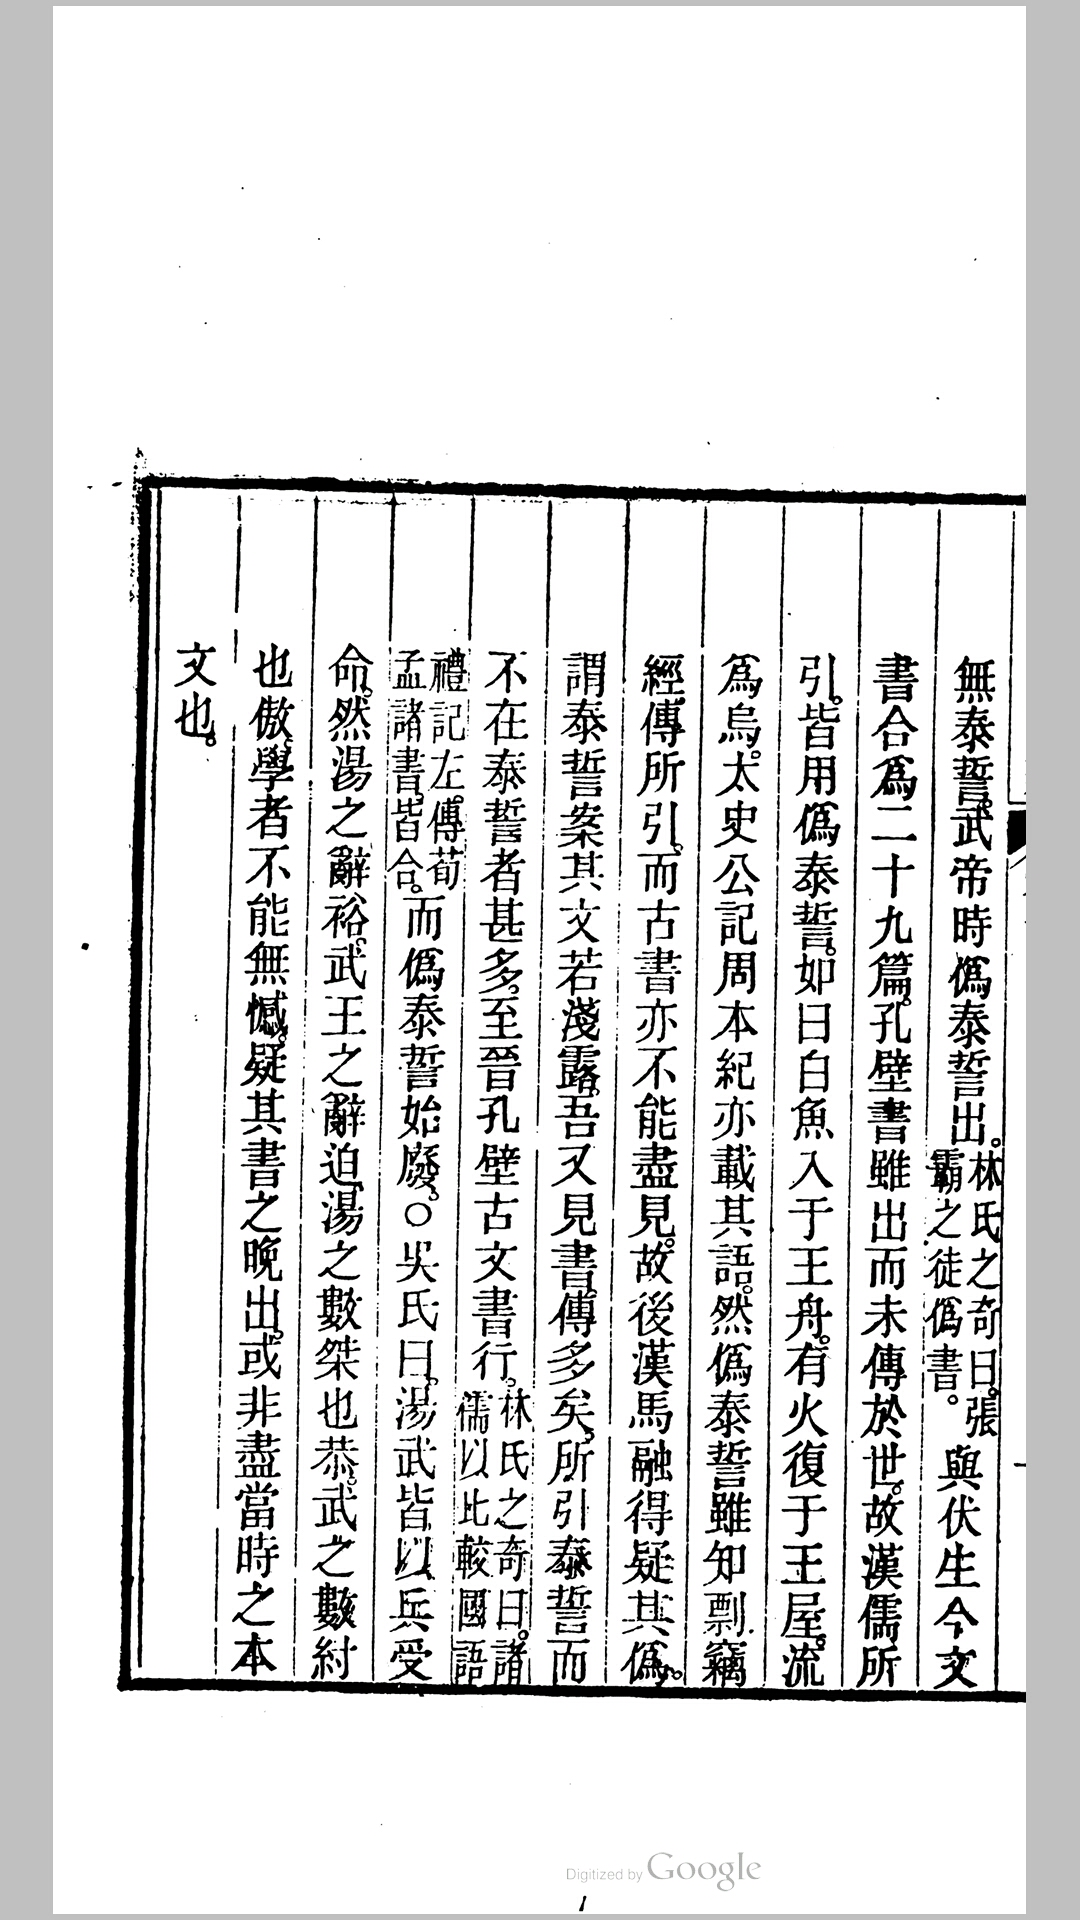 無泰誓。武帝時僞泰誓出。林氏之奇曰。張霸之徒僞書。與伏生今文
書合爲二十九篇。孔壁書雖出而未傳於世。故漢儒所
引。皆用僞泰誓。如曰白魚入于王舟。有火復于王屋。流
爲烏。太史公記周本紀亦載其語。然僞泰誓雖知剽竊
經。傳所引。而古書亦不能盡見。故後漢馬融得疑其僞。
謂泰誓案其文若淺露。吾又見書傳多矣。所引泰誓而
不在泰誓者甚多。至晉孔壁古文書行。林氏之奇曰。諸儒以比較國語
禮記左。傳荀孟諸書。皆合。而僞泰誓始廢。○吳氏曰。湯武皆以兵受
命。然湯之辭裕。武王之辭迫。湯之數桀也恭。武之數紂
也傲。學者不能無憾。疑其書之晚出。或非盡當時之本
文也。
Digitized by Google
1